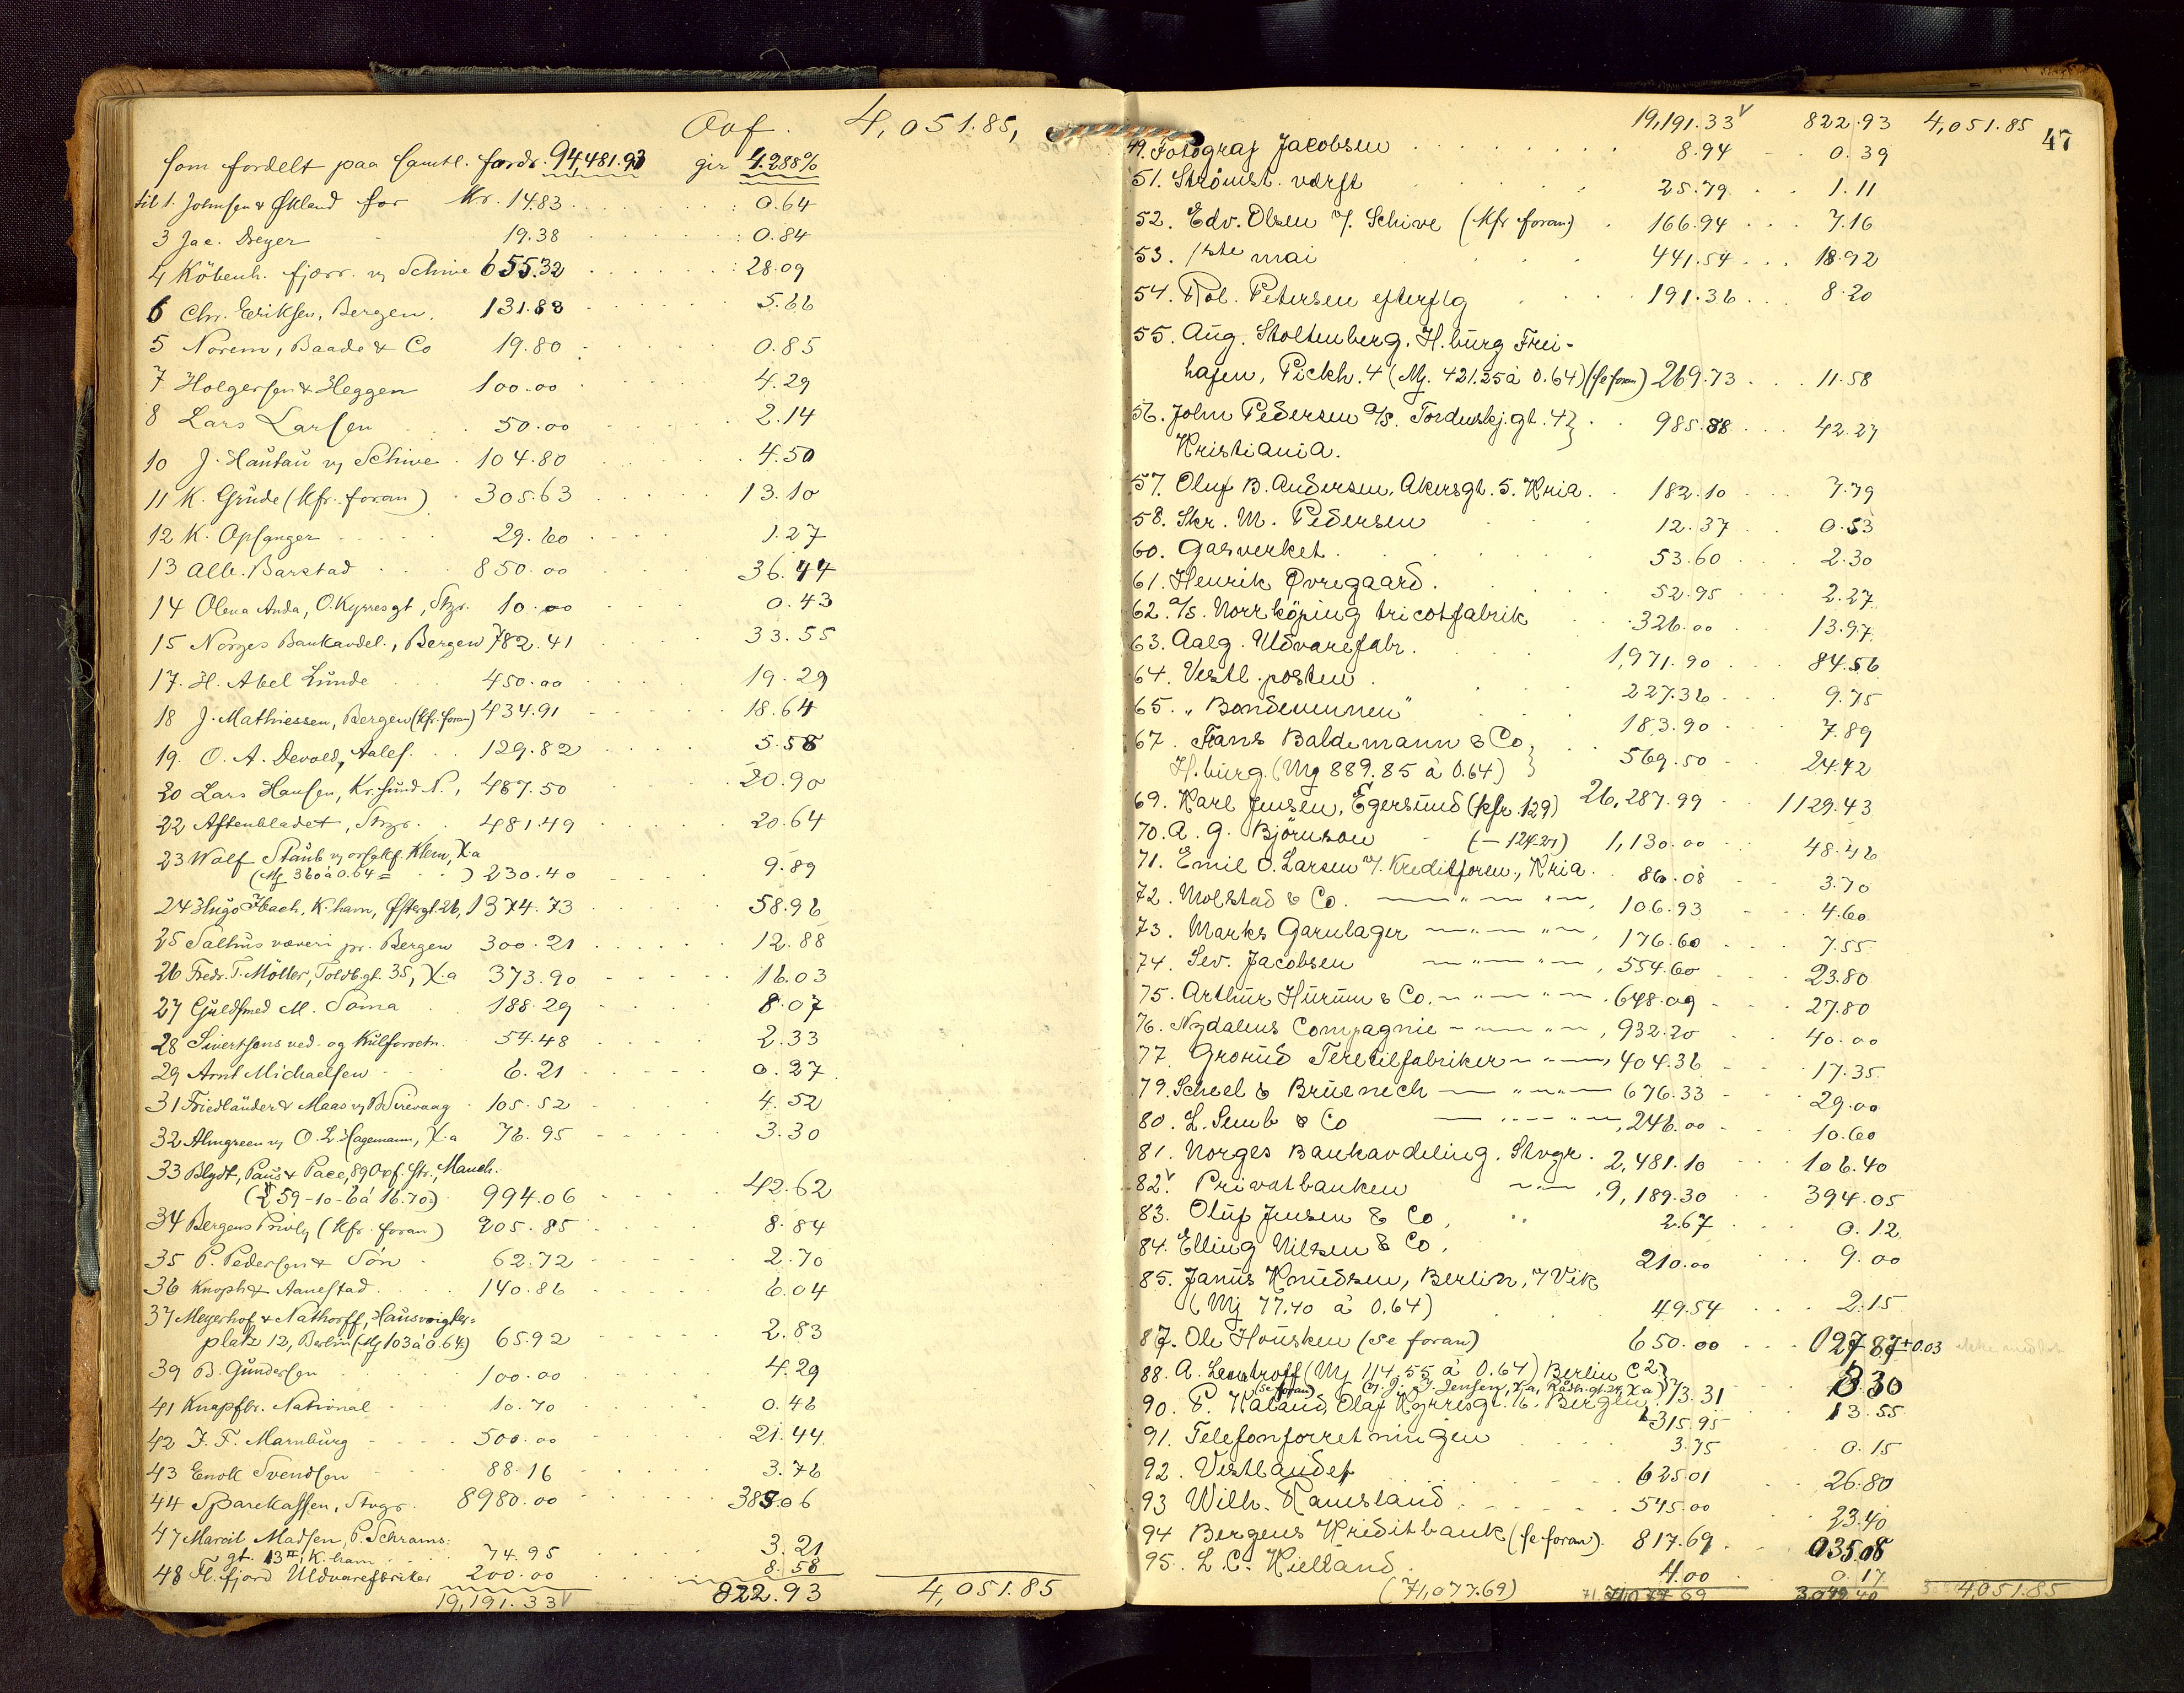 Ovf. 4,051.85,
som fordelt paa samtl. fordr. 94,481.93 gir 4.288%
til 1. Johnsen & Økland for Kr. 14.83 0.64
3 Jac. Dreyer 19.38 0.84
4 Köbenh. fjærr. v/ Schive 655.32 28.09
6 Chr. Eriksen, Bergen. 131.88 5.66
5 Norem, Baade & Co 19.80 0.85
7 Holgersen & Heggen 100.00 4.29
8 Lars Larsen 50.00 2.14
10 J. Hautau v/ Schive 104.80 4.50
11 K. Grude (kfr. foran) 305.63 13.10
12 K. Opsanger 29.60 1.27
13 Alb. Barstad 850.00 36.44
14 Olena Anda, O. Kyrresgt, Stvgr. 10.00 0.43
15 Norges Bankavdel., Bergen 782.41 33.55
17. H. Abel Lunde 450.00 19.29
18 J. Mathiessen, Bergen (kfr. foran) 434.91 18.64
19. O. A. Devold, Aales. 129.82 5.58
20 Lars Hansen, Kr.sund N., 487.50 20.90
22 Aftenbladet, Stvgr. 481.49 20.64
23 Wolf Staub v/ orsakf. Klem, X.a
(Mj 360 á 0.64 = ) 230.40 9.89
24 Hugo Ibach, K.ham, Østergt. 26, 1374.73 58.96
25 Salhus væveri pr. Bergen 300.21 12.88
26 Fredr. T. Möller, Toldb.gt. 35, X.a 373.90 16.03
27 Guldsmed M. Soma 188.29 8.07
28 Sivertsons ved- og kulforretn. 54.48 2.33
29 Arnt Michaelsen 6.21 0.27
31 Friedländer & Maas v/ B. Sirevaag 105.52 4.52
32 Almgreen v/ O. L. Hagemann, X.a 76.95 3.30
33 Blydt, Paus & Pace, 89 Oxf. Str., Manch.
(£ 59-10-6 á 16.70=) 994.06 42.62
34 Bergens Privb. (kfr. foran) 205.85 8.84
35 P. Pedersen & Søn 62.72 2.70
36 Knoph & Aanestad 140.86 6.04
37 Meyerhof & Nathorff, Hausvoigtei-
platz 12, Berlin (Mj 103 á 0.64) 65.92 2.83
39 B. Gundersen 100.00 4.29
41 Knapfbr. National 10.70 0.46
42 J. F. Marnburg 500.00 21.44
43 Enok Svendsen 88.16 3.76
44 Sparekassen, Stvgr. 8980.00 385.06
47 Marcit Madsen, P. Schrams-
gt. 13 II, K.ham 74.95 3.21
48 Fl.fjord Uldvarefabriker 200.00 8.58
19,191.33 V 822.93 4,051.85
19,191.33 V 822.93 4,051.85 47
49. Fotograf Jacobsen 8.94 0.39
51. Strömst. værft 25.79 1.11
52. Edv. Olsen v/. Schive (kfr foran) 166.94 7.16
53. 1ste mai 441.54 18.92
54. Rol. Petersen efterflg 191.36 8.20
55. Aug. Stoltenberg, H.burg Frei-
hafen, Pickh. 4 (Mj. 421.25 á 0.64) (se foran) 269.73 11.58
56. John Pedersen A/S. Tordenskj.gt. 4 } 985.88 42.27
Kristiania.
57. Oluf B. Andersen, Akersgt. 5. Kria. 182.10 7.79
58. Skr. M. Pedersen 12.37 0.53
60. Gasverket. 53.60 2.30
61. Henrik Øvregaard. 52.95 2.27
62. A/S. Norrköping tricotfabrik 326.00 13.97
63. Aalg. Uldvarefabr. 1,971.90 84.56
64. Vestl. posten. 227.36 9.75
65. "Bondevennen" 183.90 7.89
67. Frans Baldemann & Co, }
H.burg. (Mj 889.85 á 0.64) } 569.50 24.42
69. Karl Jensen, Egersund (kfr. 129) 26,287.99 1129.43
70. A. G. Björnson (— 124-27) 1,130.00 48.46
71. Emil O. Larsen v/. Kreditforen., Kria. 86.08 3.70
72. Molstad & Co. — " — " —, 106.93 4.60
73. Marks Garnlager — " — " —, 176.60 7.55
74. Sev. Jacobsen — " — " —, 554.60 23.80
75. Arthur Hurum & Co. — " — " —, 648.09 27.80
76. Nydalens Compagnie — " — " —, 932.20 40.00
77. Grorud Texetilfabriker — " —, 404.36 17.35
79. Scheel & Bruenech — " — " — 676.33 29.00
80. L. Semb & Co — " — " —, 246.00 10.60
81. Norges Bankavdeling. Stvgr. 2,481.10 106.40
82. V Privatbanken — " —, 9,189.30 394.05
83. Oluf Jensen & Co, " 2.67 0.12
84. Elling Nilsen & Co, 210.00 9.00
85. Janus Knudsen, Berlin, v/ Vik
(Mj 77.40 á 0.64) 49.54 2.15
87. Ole Housken (se foran) 650.00 27 87 + 0.03
88. A. Lewtroff (Mj 114,55 á 0.64) Berlin C 2 }
73.31 3.30
90. P. Kaland, Olaf Kyrresgt. 16. Bergen. 315.95 13.55
91. Telefonforretningen 3.75 0.15
92. Vestlandet 625.01 26.80
93 Wilh. Ramsland. 545.00 23.40
94 Bergens Kreditbank (se foran). 817.69 35.08
95. L. C. Kielland. 4.00 0.17
(71,077.69) 71,077 69 3.049.40 4,051.85